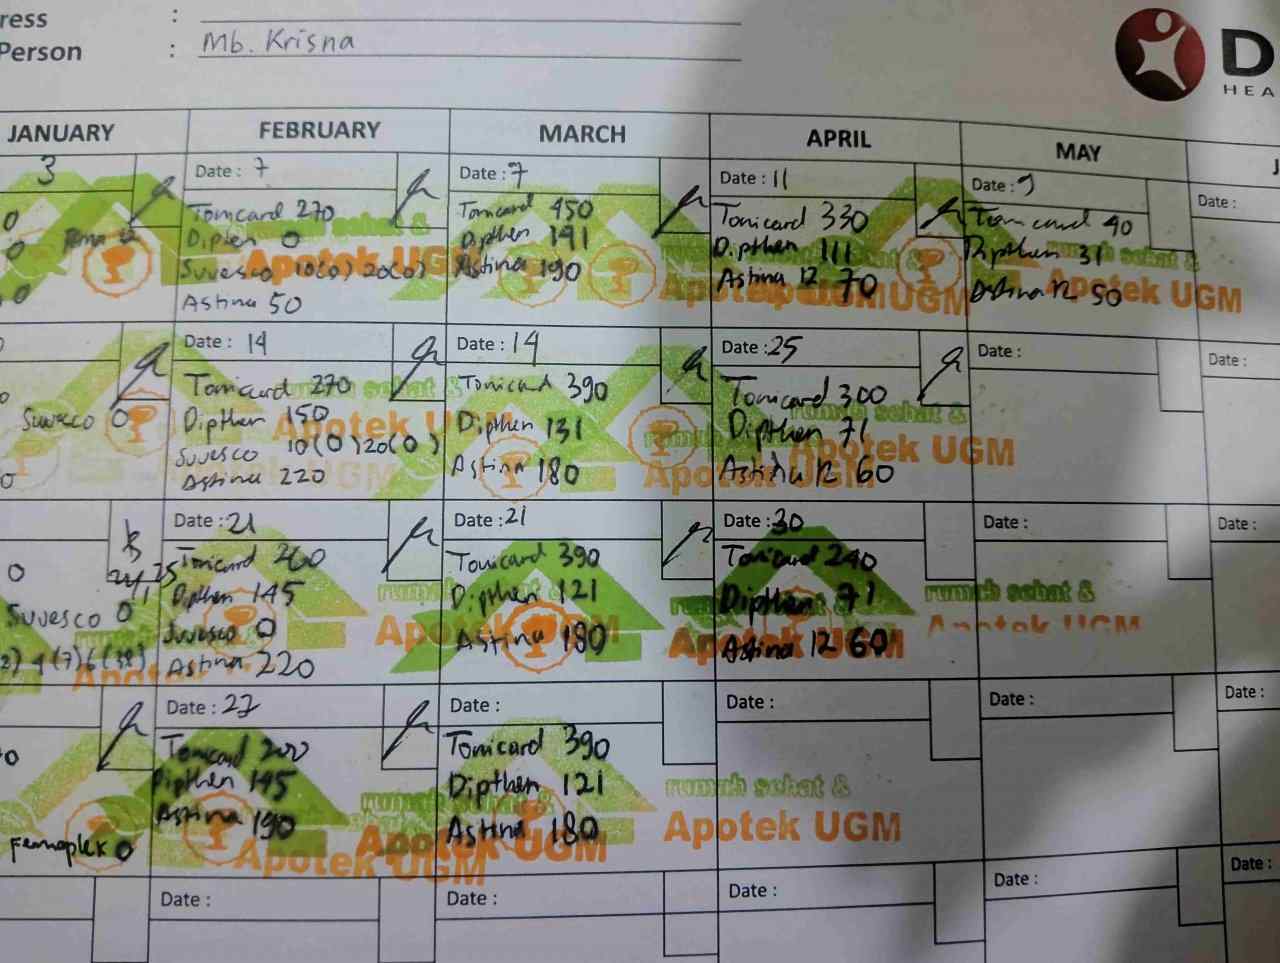 ress :
Person : Mb. Krisna
D
HEA
JANUARY FEBRUARY MARCH APRIL MAY J
3
0
0
0
Date : 7
Tomcard 270
Dipthen 0
Suvesco 10(0) 20(0)
Astina 50
Date : 7
Tomcard 450
Dipthen 141
Astina 190
Date : 11
Tomicard 330
Dipthen 111
Astina 12 70
Date : 9
Tomicard 40
Dipthen 31
Astina 12 50
Date :
Suvesco 0
Date : 14
Tomicard 270
Dipthen 150
Suvesco 10(0) 20(0)
Astina 220
Date : 14
Tomicard 390
Dipthen 131
Astina 180
Date : 25
Tomicard 300
Dipthen 71
Astina 12 60
Date :
Date :
0
Suvesco 0
4(7) 6(38)
Date : 21
Tomicard 260
Dipthen 145
Suvesco 0
Astina 220
Date : 21
Tomicard 390
Dipthen 121
Astina 180
Date : 30
Tomicard 240
Dipthen 71
Astina 12 60
Date :
Date :
Femoplex 0
Date : 27
Tomicard 200
Dipthen 145
Astina 190
Date :
Tomicard 390
Dipthen 121
Astina 180
Date :
Date :
Date :
Date :
Date :
Date :
Date :
Date :
rumah sehat &
Apotek UGM